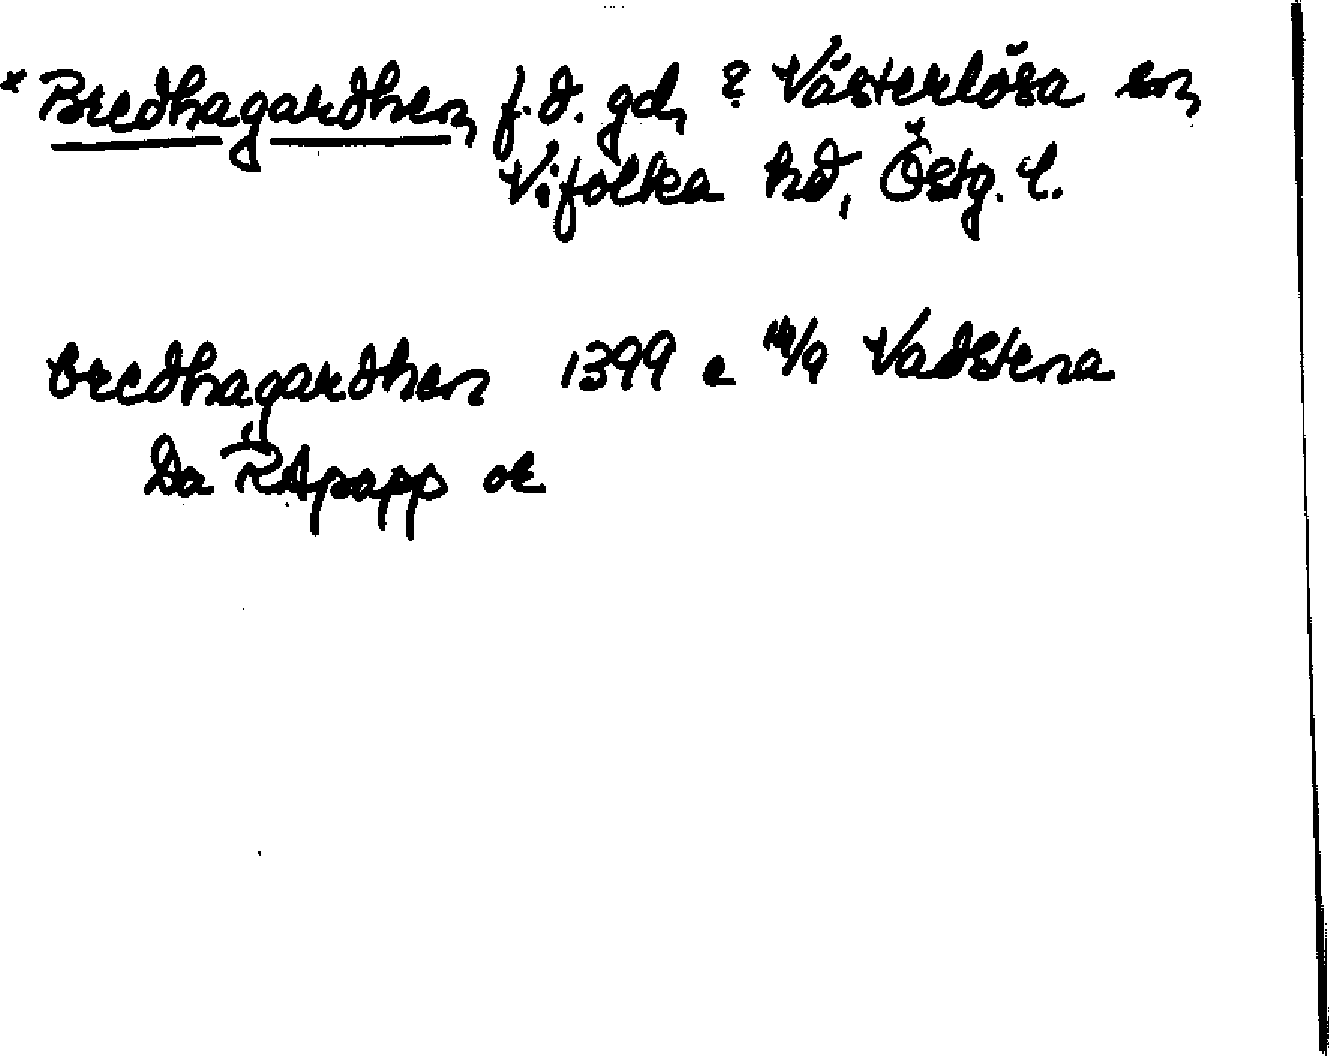 * Bredhagardhen, f.d. gd, ? Västerlösa sn,
Vifolka hd, Östg. l.
bredhagardhen 1399 e /9 Vadstena
Da RApapp or